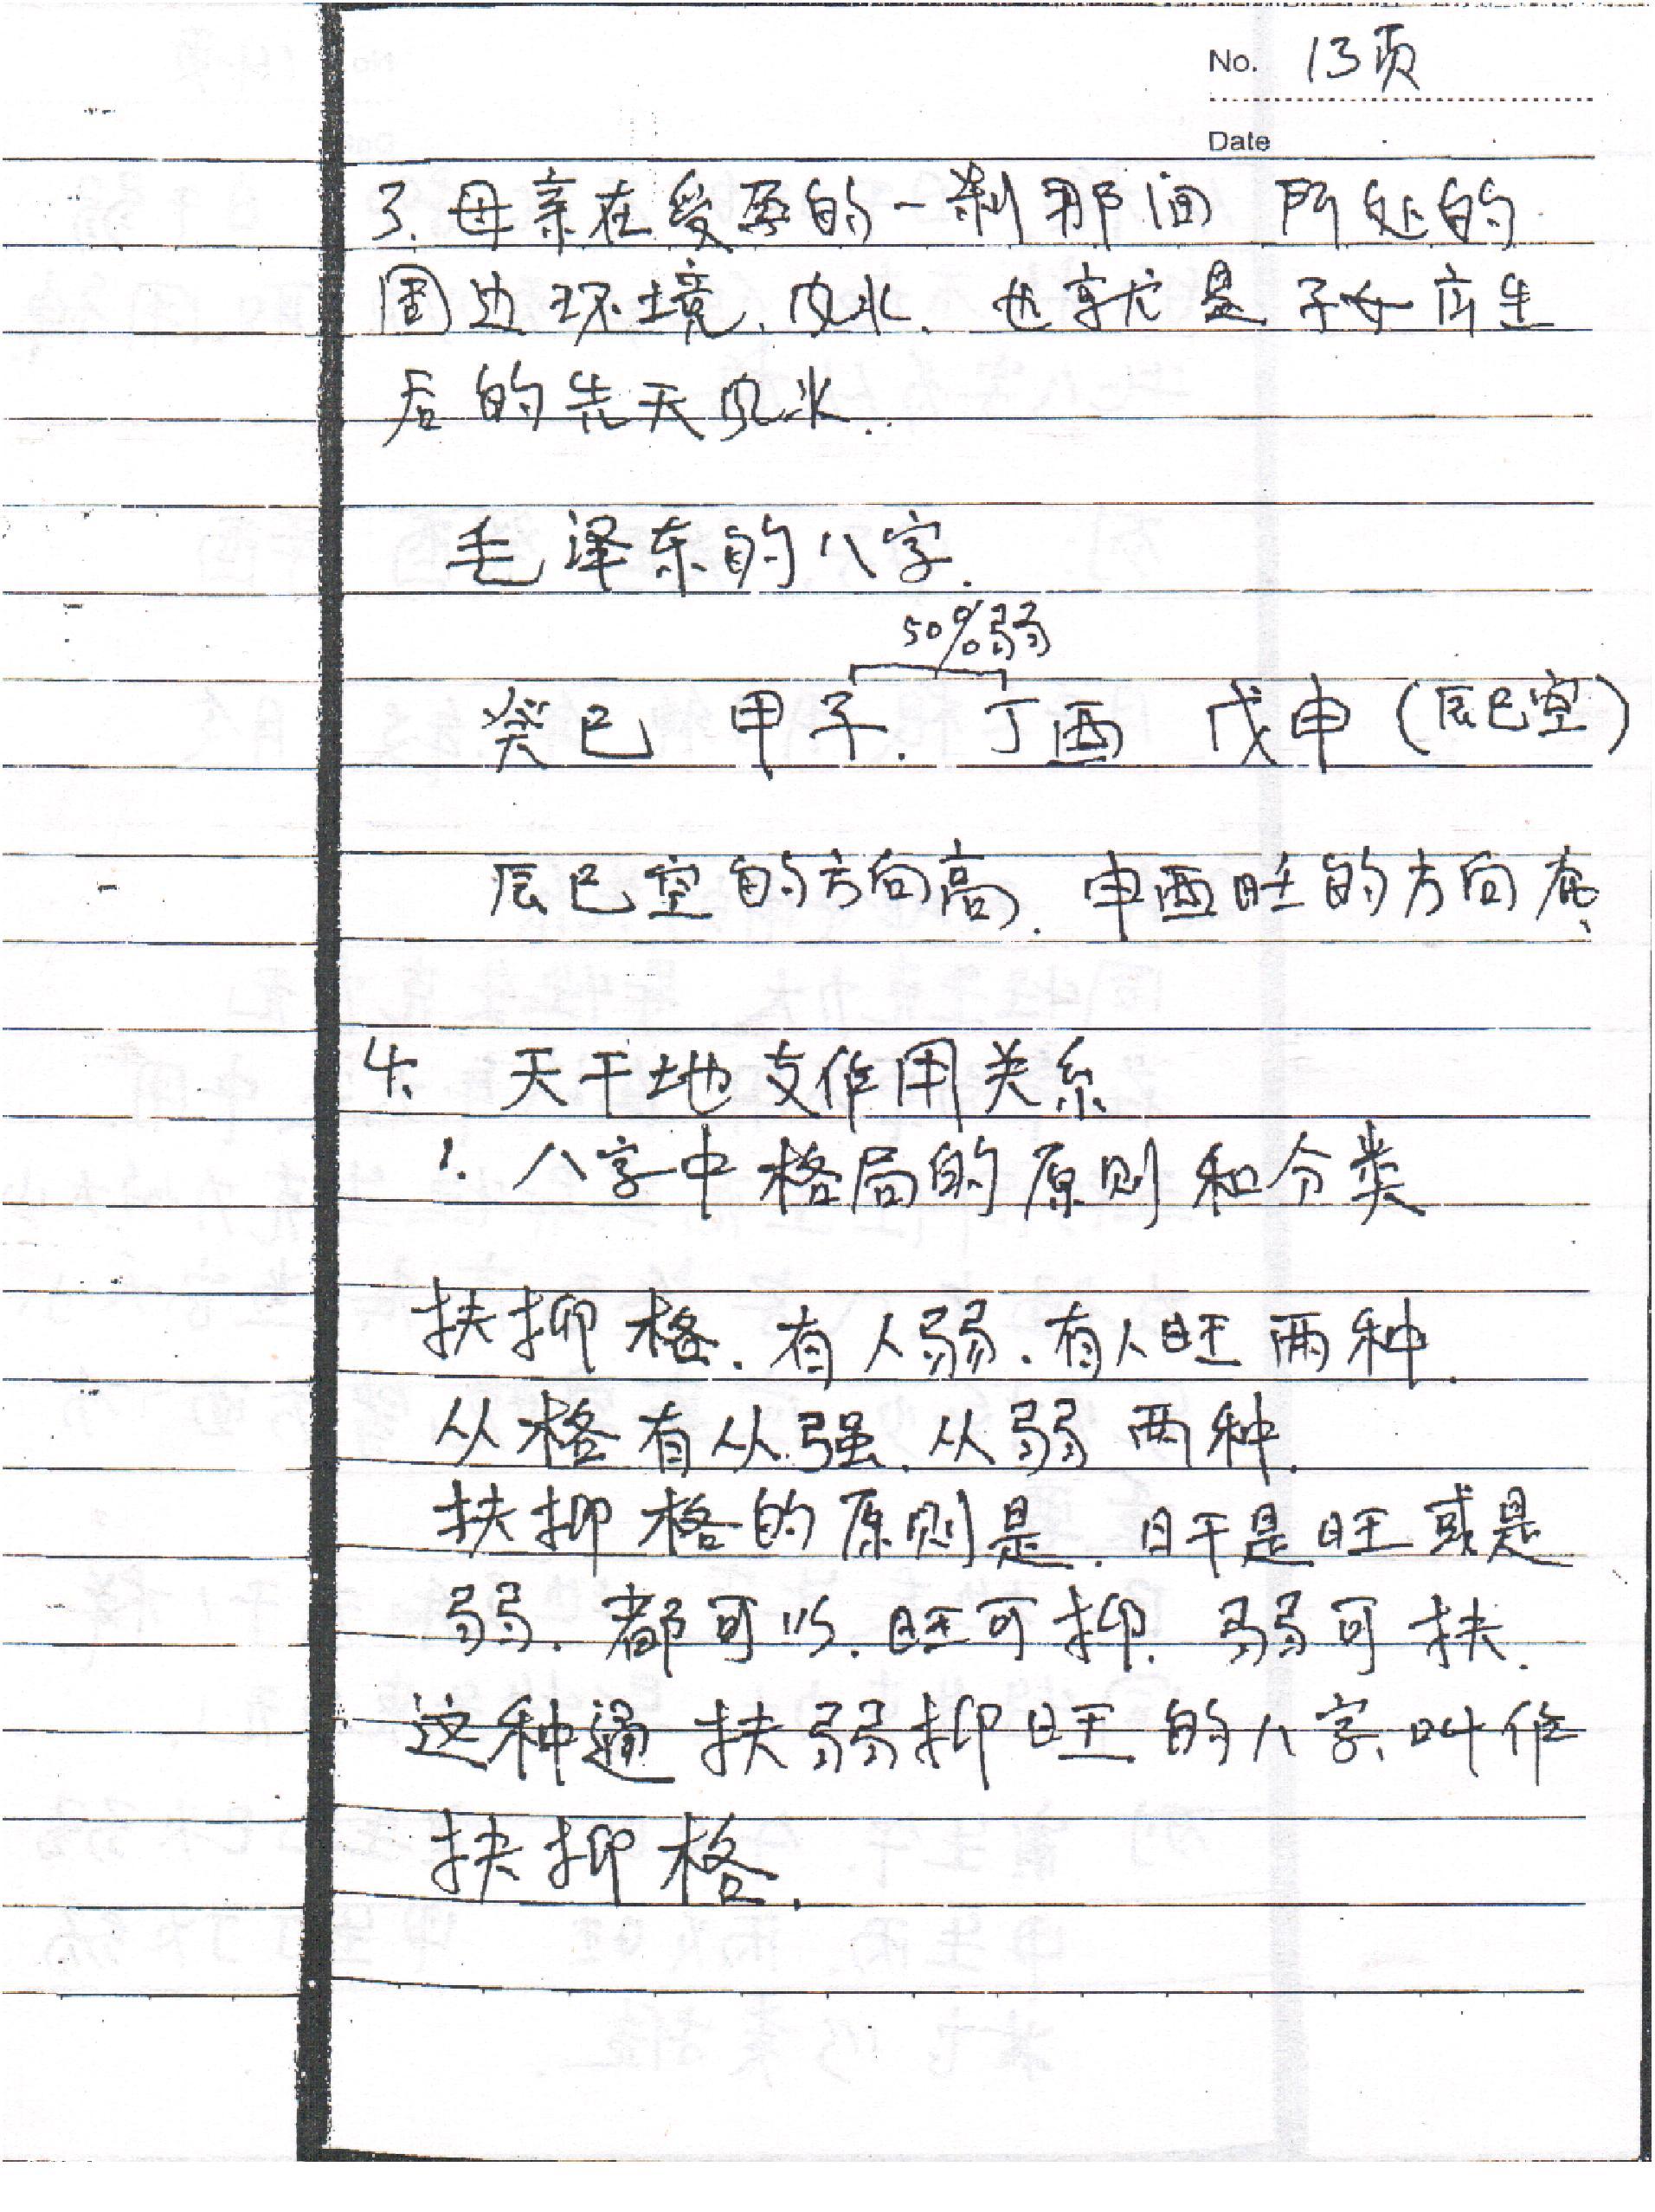 No. 13页
Date
3. 母亲在受孕的一刹那间 所处的
周边环境、风水、也就是子女产生
后的先天风水.
毛泽东的八字.
50%弱
癸巳 甲子. 丁酉 戊申 (辰巳空)
辰巳空的方向高. 申酉旺的方向
4. 天干地支作用关系
1. 八字中格局的原则和分类
扶抑格. 有人弱. 有人旺 两种.
从格有从强. 从弱 两种.
扶抑格的原则是. 日干是旺或是
弱. 都可以. 旺可抑. 弱可扶.
这种通扶弱抑旺的八字. 叫作
扶抑格.